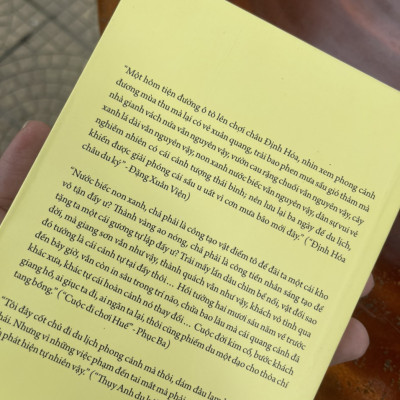 "Một hôm tiện đường ô tô lên chơi châu Định Hóa, nhìn xem phong cảnh
dương mùa thu mà lại có vẻ xuân quang, trải bao phen mưa sầu gió thảm mà
nhà gianh vách nứa vẫn nguyên vậy, vườn cau rặng chuối vẫn nguyên vậy, cây
xanh lá dài vẫn nguyên vậy, non xanh nước biếc vẫn nguyên vậy, dân sự vui vẻ
nghiễm nhiên có cái cảnh tượng thái bình, nên lưu lại ba ngày để du lịch,
khiến được giải phóng cái sầu u uất vì cơn mưa bão mới đây." ("Định Hóa
châu du ký" - Đặng Xuân Viện)
"Nước biếc non xanh, chả phải là công tạo vật điểm tô để đãi ta một cái kho
vô tận đấy ư? Thành vàng ao nóng, chả phải là công tiền nhân sáng tạo để
tặng ta một cái gương tự lập đấy ư? Trải mấy lần dâu chìm bể nổi, vật đổi sao
dời, mà giang sơn vẫn như vậy, thành quách vẫn như vậy, khách vô tình qua
đó tưởng là cái cảnh tự tại đấy thôi... Hồi tưởng hai mươi sáu năm về trước
đến bây giờ, vẫn còn in sâu trong trí não, chửa bao lâu mà cái quang cảnh đã
khác xưa, khác tự cái hoàn cảnh nó thay đổi... Cuộc đời kim cổ, bước khách
giang hồ, ai giục ta đi, ai ngăn ta lại, thôi cũng phiếm du một dạo cho thỏa chí
tang bồng." ("Cuộc đi chơi Huế" - Phục Ba)
"Tôi đây cốt chủ đi du lịch phong cảnh mà thôi, dám đâu lạm
phải. Nhưng vì những việc phạm đến tai mắt mà phải
phát hiện tự nhiên vậy." ("Thụy Anh du